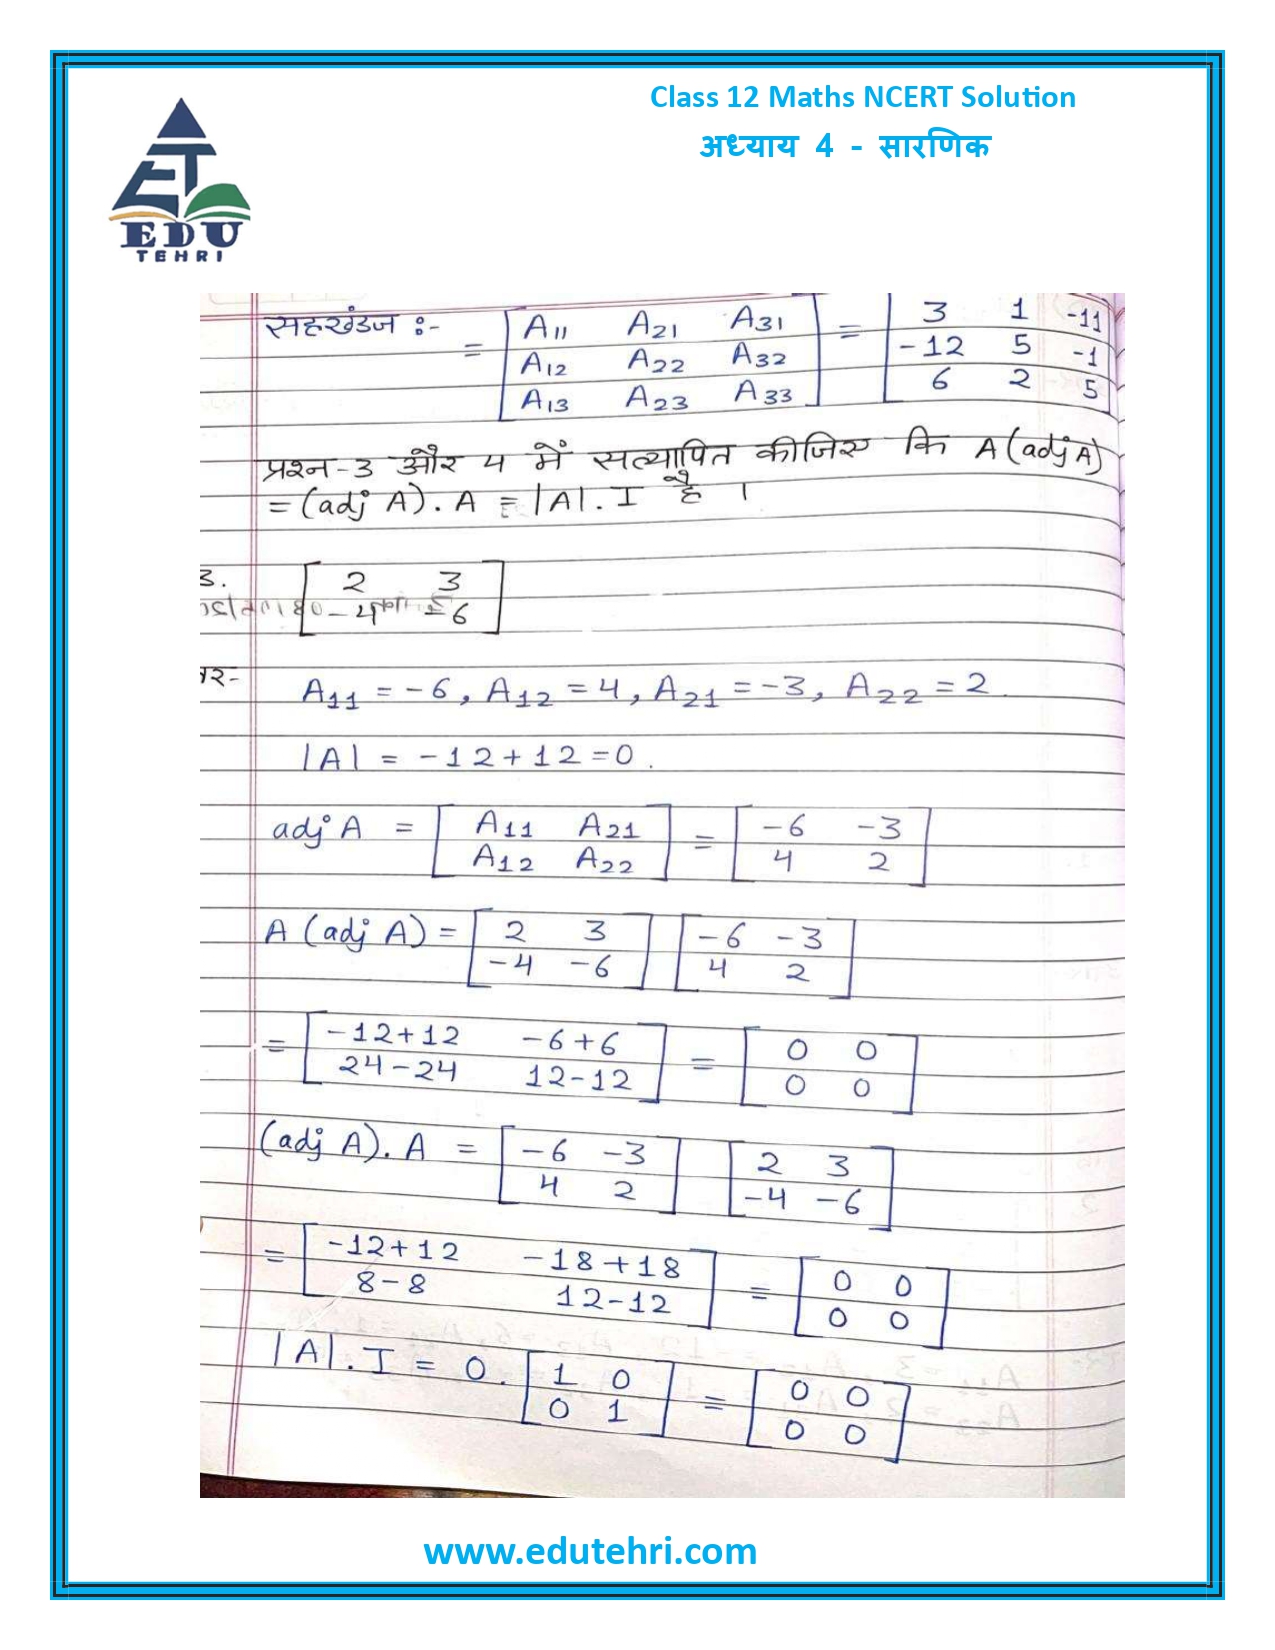 Class 12 Maths NCERT Solution
अध्याय 4 - सारणिक
EDU
TEHRI
सहखंडज :-
= [ A11 A21 A31 ] = [ 3 1 -11 ]
[ A12 A22 A32 ] [ -12 5 -1 ]
[ A13 A23 A33 ] [ 6 2 5 ]
प्रश्न-3 और 4 में सत्यापित कीजिए कि A(adj A)
= (adj A). A = |A|. I है ।
3. [ 2 3 ]
[ -4 -6 ]
A11 = -6, A12 = 4, A21 = -3, A22 = 2.
|A| = -12+12 = 0.
adj A = [ A11 A21 ] = [ -6 -3 ]
[ A12 A22 ] [ 4 2 ]
A (adj A) = [ 2 3 ] [ -6 -3 ]
[ -4 -6 ] [ 4 2 ]
= [ -12+12 -6+6 ] = [ 0 0 ]
[ 24-24 12-12 ] [ 0 0 ]
(adj A). A = [ -6 -3 ] [ 2 3 ]
[ 4 2 ] [ -4 -6 ]
= [ -12+12 -18+18 ] = [ 0 0 ]
[ 8-8 12-12 ] [ 0 0 ]
|A|. I = 0. [ 1 0 ] = [ 0 0 ]
[ 0 1 ] [ 0 0 ]
www.edutehri.com